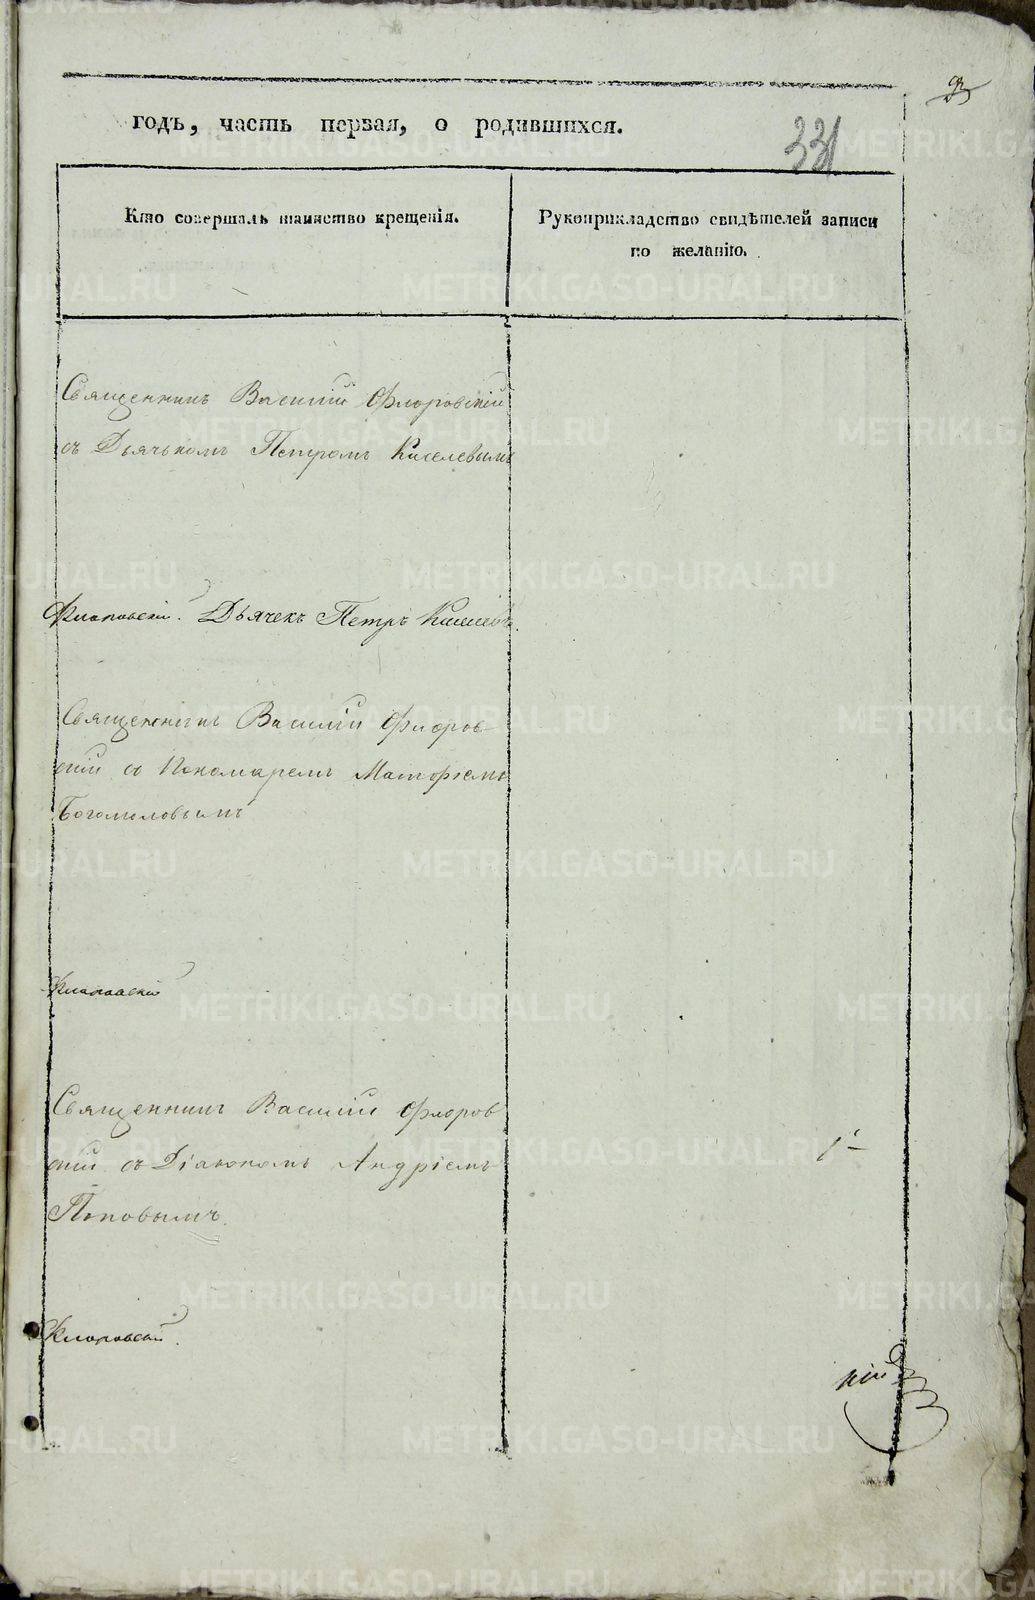 331
годъ, часть первая, о родившихся.
Кто совершалъ таинство крещенія.
Рукоприкладство свидѣтелей записи
по желанію.
Священникъ Василій Флоровскій
съ Дьячькомъ Петромъ Киселевымъ
Флоровскій. Дьячекъ Петръ Киселевъ.
Священникъ Василій Флоров
скій со Пономаремъ Матфіемъ
Богомиловымъ
Флоровскій
Священникъ Василій Флоров
скій съ Діакономъ Андріемъ
Поповымъ
Флоровскій.
кій
METRIKI.GASO-URAL.RU